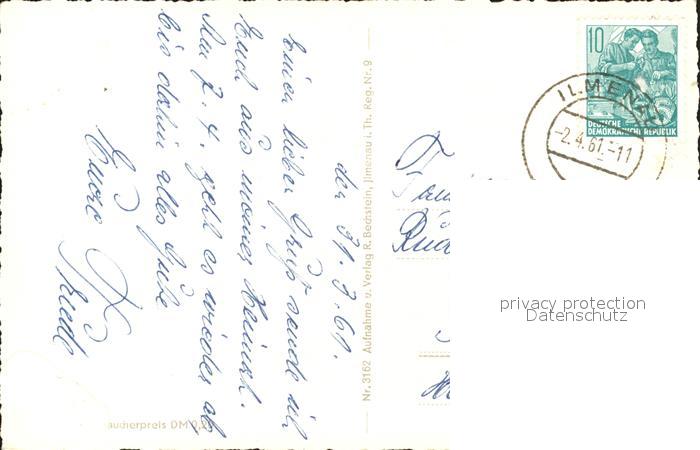 den 31.3.61.
Einen lieben Gruß sende ich
Euch aus meiner Heimat.
Am 7.4. geht es wieder ab
bis dahin alles Gute
Eure
Nr. 3162 Aufnahme u. Verlag R. Bechstein, Ilmenau i. Th. Reg. Nr. 9
aucherpreis DM 0,2
10
DEUTSCHE
DEMOKRATISCHE REPUBLIK
ILMENAU
-2.4.61.-11
privacy protection
Datenschutz